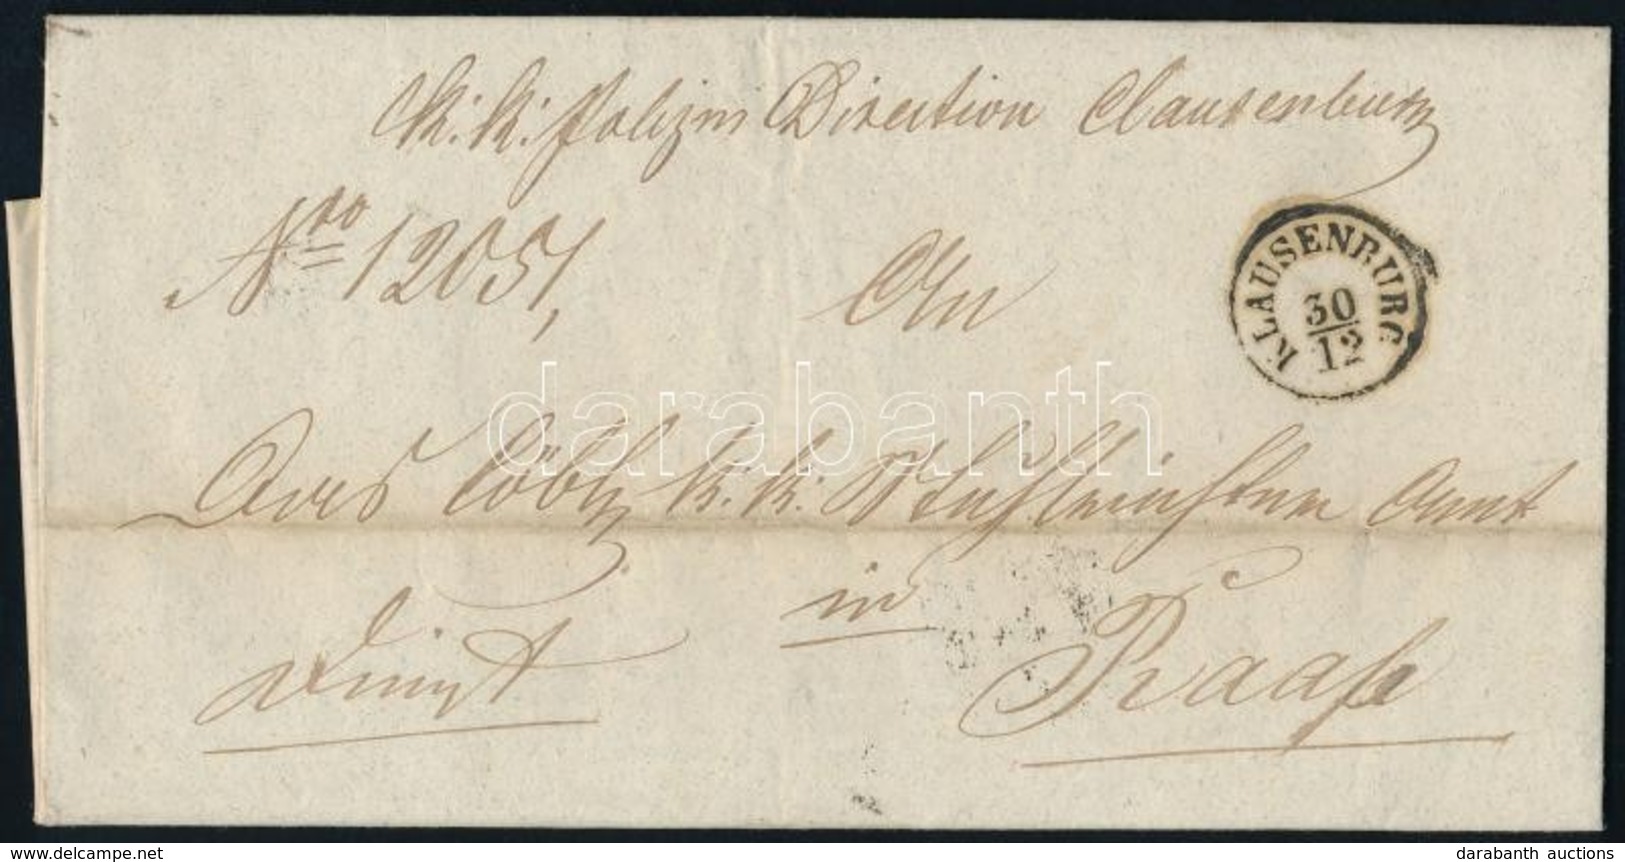 K: K: Polizei Direction Clausenburg
Nro 12051,
An
KLAUSENBURG
30
12
darabanth
Das löbl. k: k: Stuhlrichter Amt
in
Dienst
Raab
delcampe.net
darabanth auctions